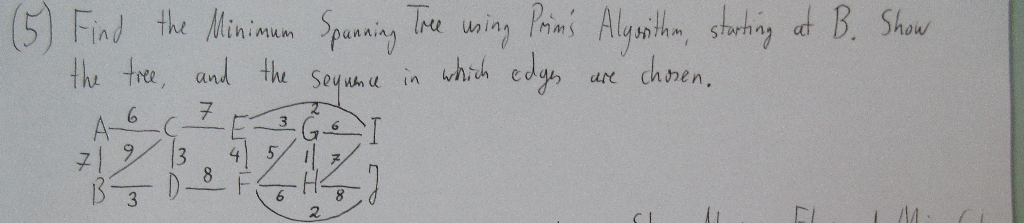 (5) Find the Minimum Spanning Tree using Prim's Algorithm, starting at B. Show
the tree, and the sequence in which edges are chosen.
6 7 2
A C E 3 G 6 I
7 9 3 4 5 1 7
B 3 D 8 F 6 H 8 J
2